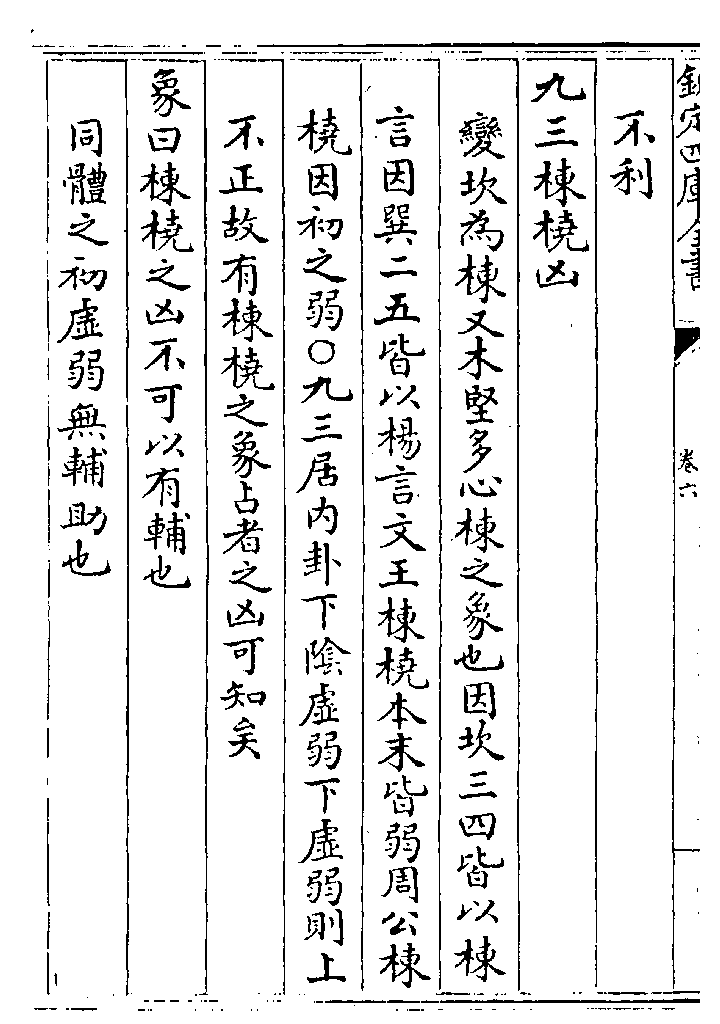 欽定四庫全書
卷六
不利
九三棟橈凶
變坎為棟又木堅多心棟之象也因坎三四皆以棟
言因巽二五皆以楊言文王棟橈本末皆弱周公棟
橈因初之弱○九三居内卦下陰虛弱下虛弱則上
不正故有棟橈之象占者之凶可知矣
象曰棟橈之凶不可以有輔也
同體之初虛弱無輔助也